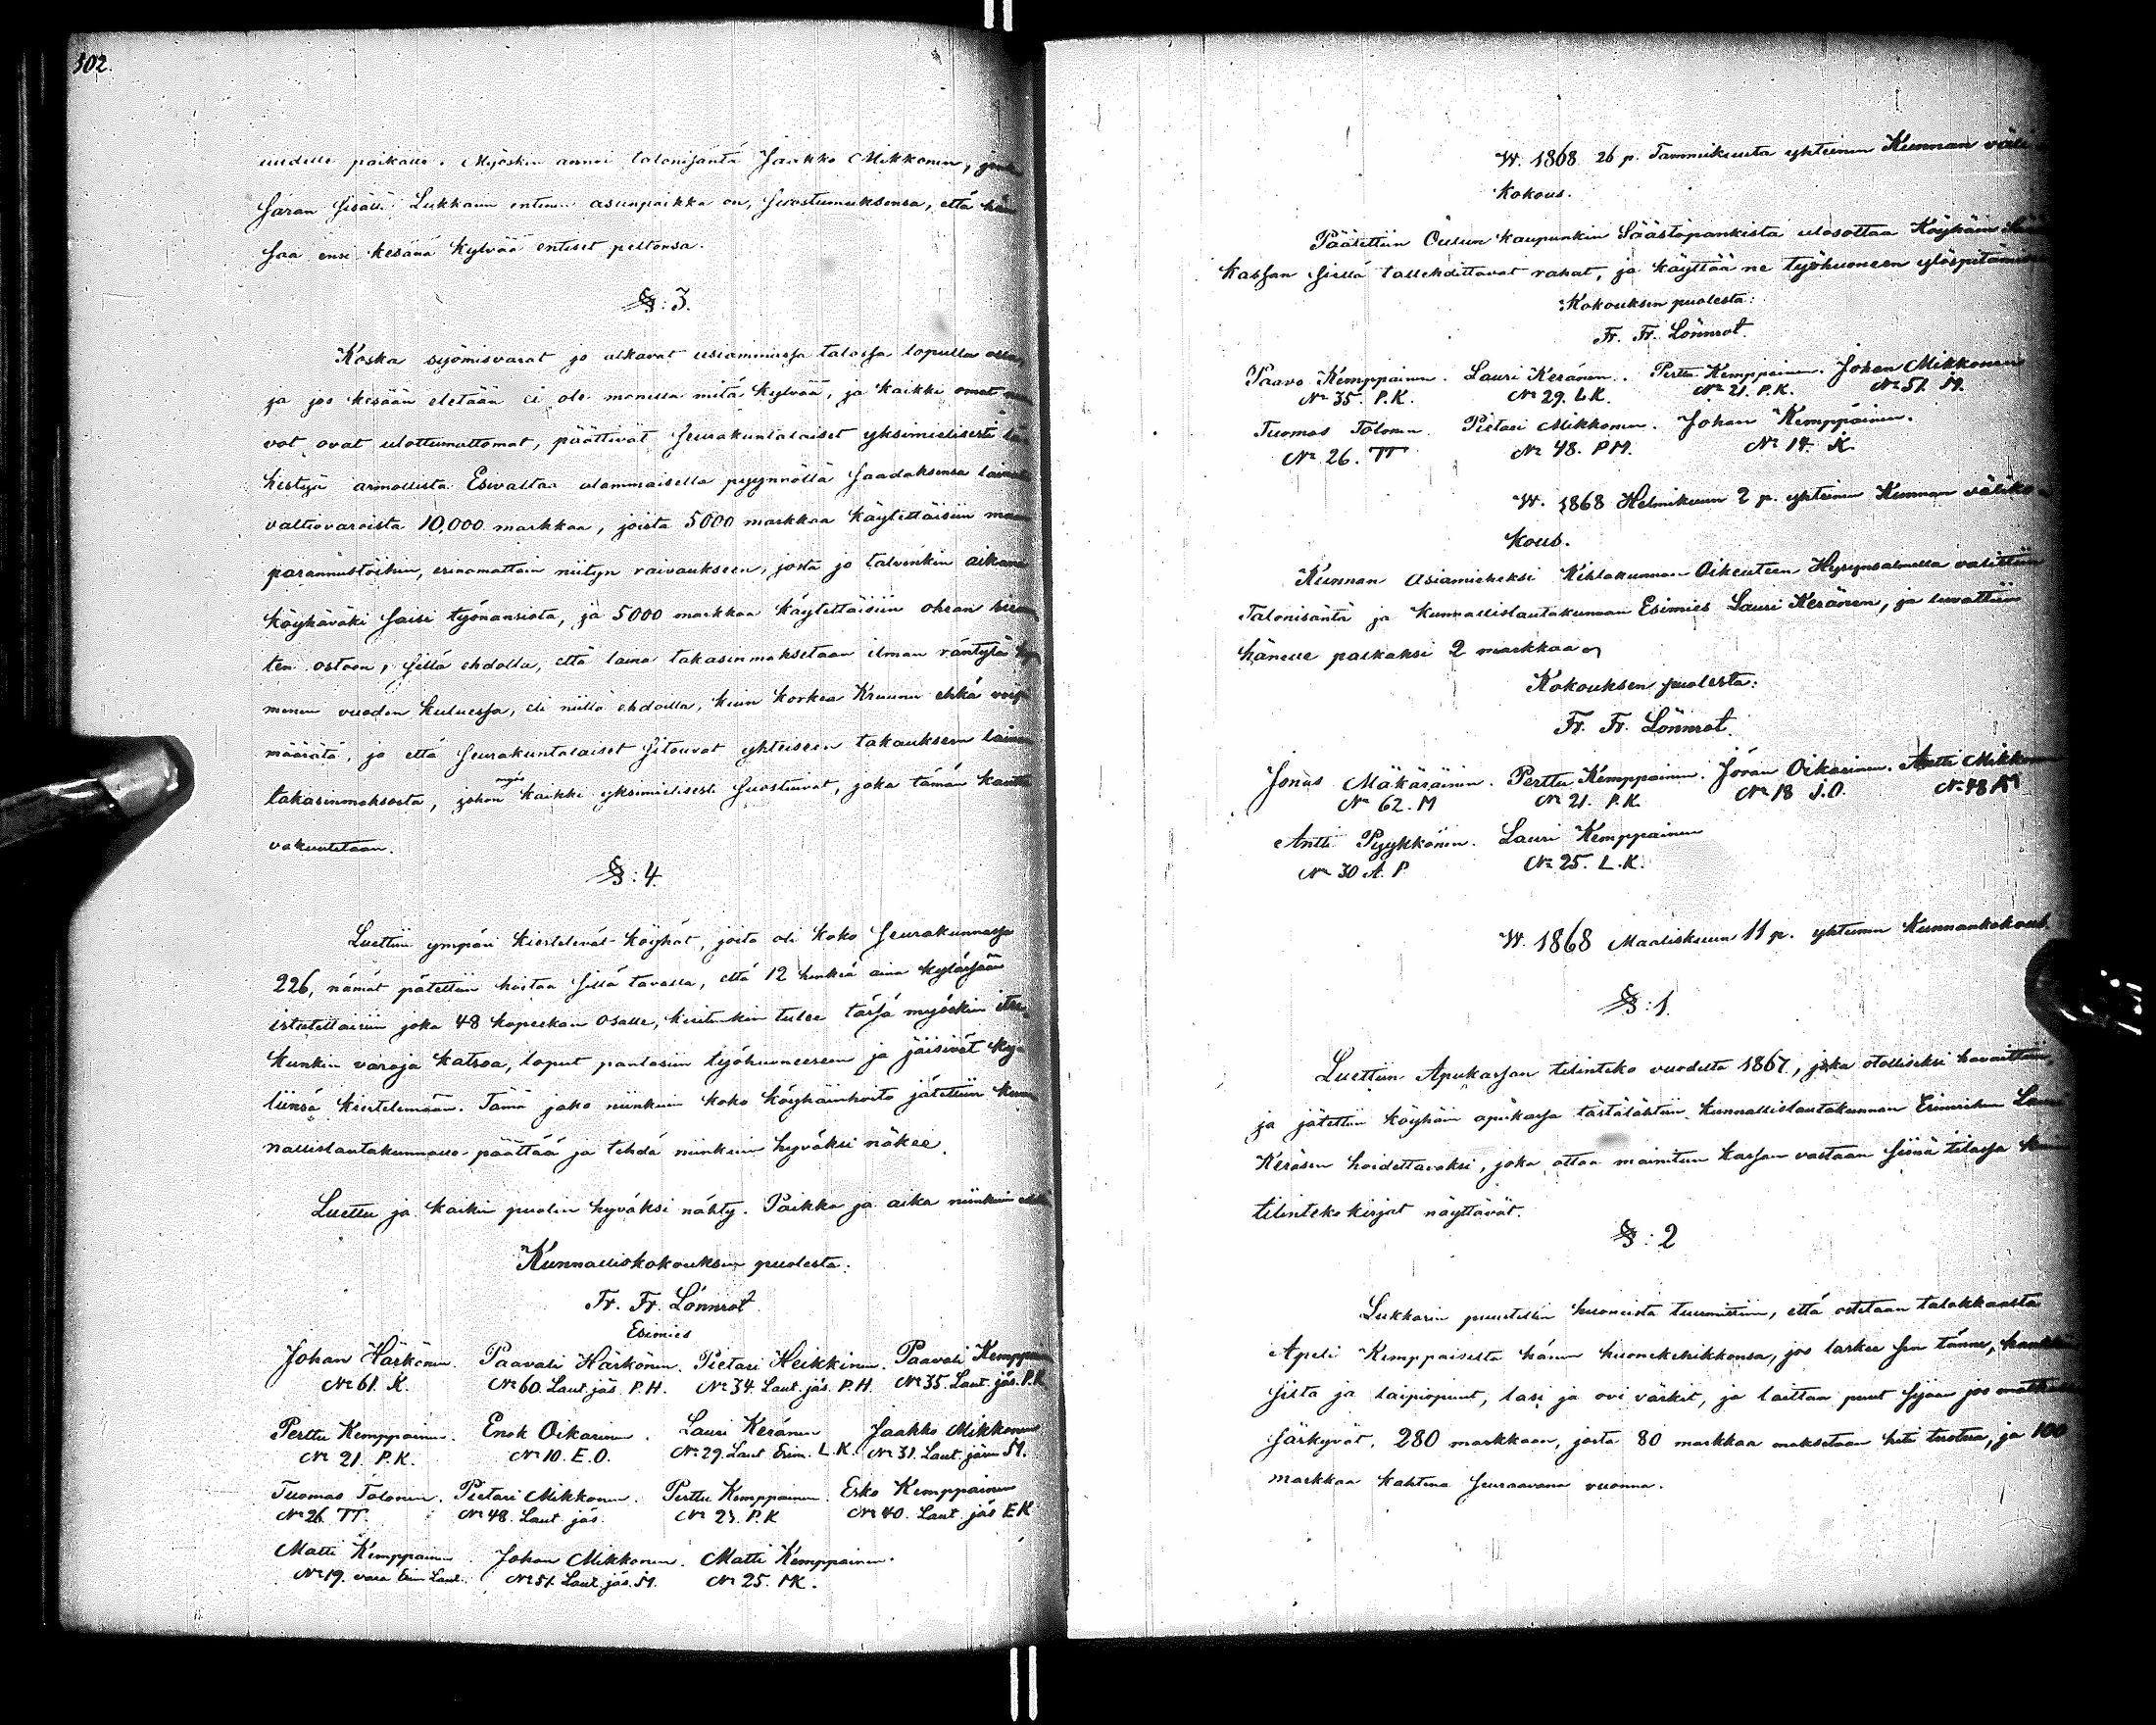 302.
uudelle paikalle. Myöskin annoi talonisäntä Jaakko Mikkonen, jonka
saran sisällä Lukkarin entinen asuinpaikka on, suostumuksensa, että hän
saa ensi kesänä kylvää entiset peltonsa.
§: 3.
Koska syömisvarat jo alkavat useammassa talossa lopulla olla,
ja jos kesään eletään ei ole monella mitä kylvää, ja kaikki omat
vat ovat ulottumattomat, päättivät seurakuntalaiset yksimielisesti
hestyä armollista Esivaltaa alammaisella pyynnöllä saadaksensa lainata
valtiovaroista 10,000 markkaa, joista 5000 markkaa käytettäisiin maan
parannustöihin, erinomattain niityn raivaukseen, josta jo talvenkin aikana
köyhäväki saisi työnansiota, ja 5000 markkaa käytettäisiin ohran siemen
ten ostoon, sillä ehdolla, että laina takasinmaksetaan ilman räntytä kym
menen vuoden kuluessa, eli niillä ehdoilla, kuin korkea Kruunu ehkä voipi
määrätä, ja että seurakuntalaiset sitouvat yhteiseen takaukseen lainan
takasinmaksosta, johon myös kaikki yksimielisesti suostuivat, joka tämän kautta
vakuutetaan.
§: 4.
Luettiin ympäri kiertelevät köyhät, joita oli koko seurakunnassa
226, nämät pätettiin hoitaa sillä tavalla, että 12 henkeä aina kylässään
istutettaisiin joka 48 kopeekan osalle, kuitenkin tulee tässä myöskin itse
kunkin varoja katsoa, loput pantasiin työhuoneeseen ja jäisivät kyl
liinsä kiertelemään. Tämä jako niinkuin koko köyhäinhoito jätettiin kun
nallislautakunnalle päättää ja tehdä niinkuin hyväksi näkee.
Luettu ja kaikin puolin hyväksi nähty. Paikka ja aika niinkuin
Kunnalliskokouksen puolesta:
Fr. Fr. Lönnrot
Esimies
Johan Härkönen. Paavali Härkönen. Pietari Heikkinen. Paavali Kemppainen
No 61. K. No 60. Laut. jäs. P.H. No 34. Laut. jäs. P.H. No 35. Laut. jäs. P.K.
Perttu Kemppainen. Enok Oikarinen. Lauri Keränen Jaakko Mikkonen
No 21. P.K. No 10. E.O. No 29. Laut. Esim. L.K. No 31. Laut. jäsen M.
Tuomas Tolonen. Pietari Mikkonen. Perttu Kemppainen. Esko Kemppainen
No 26. TT. No 48. Laut. jäs. No 23. P.K No 40. Laut. jäs EK
Matti Kemppainen. Johan Mikkonen. Matti Kemppainen.
No 19. vara Esim Laut. No 51. Laut. jäs. M. No 25. MK.
W. 1868 26 p. Tammikuuta yhteinen Kunnan väli
kokous.
Päätettiin Oulun kaupunkin Säästöpankista ulosottaa Köyhäin
kassan siellä tallehdittavat rahat, ja käyttää ne työhuoneen ylöspitämiseen
Kokouksen puolesta:
Fr. Fr. Lönnrot.
Paavo Kemppainen. Lauri Keränen. Perttu Kemppainen. Johan Mikkonen
No 35. P.K. No 29. L.K. No 21. P.K. No 51. M.
Tuomas Tolonen. Pietari Mikkonen. Johan Kemppainen.
No 26. TT No 48. PM. No 14. K.
W. 1868 Helmikuun 2 p. yhteinen Kunnan väliko
kous.
Kunnan asiamieheksi Kihlakunnan Oikeuteen Hyrynsalmella valittiin
Talonisäntä ja kunnallislautakunnan Esimies Lauri Keränen, ja luvattiin
hänelle palkaksi 2 markkaa
Kokouksen puolesta:
Fr. Fr. Lönnrot.
Jonas Mäkäräinen. Perttu Kemppainen. Jöran Oikarinen. Antti Mikkonen
No 62. M No 21. P.K. No 18 J.O. No 48 AM
Antti Pyykkönen. Lauri Kemppainen
No 30 A. P. No 25. L.K.
W. 1868 Maaliskuun 11 p. yhteinen Kunnankokous.
§: 1.
Luettiin Apukassan tilinteko vuodelta 1867, joka otolliseksi havaittiin,
ja jätettiin köyhäin apukassa tästälähtiin kunnallislautakunnan Esimiehen Lauri
Keräsen hoidettavaksi, joka ottaa mainitun kassan vastaan siinä tilassa kuin
tilinteko kirjat näyttävät.
§: 2
Lukkarin puustellin huoneista tuumittiin, että ostetaan talokkaasta
Apeli Kemppaiselta hänen huonekehikkonsa, jos laskee sen tänne, hankkii
silta ja laipiopuut, lasi ja ovi värkit, ja laittaa puut sijaan jos matkalla
särkyvät. 280 markkaan, josta 80 markkaa maksetaan heti tuotua, ja 100
markkaa kahtena seuraavana vuonna.